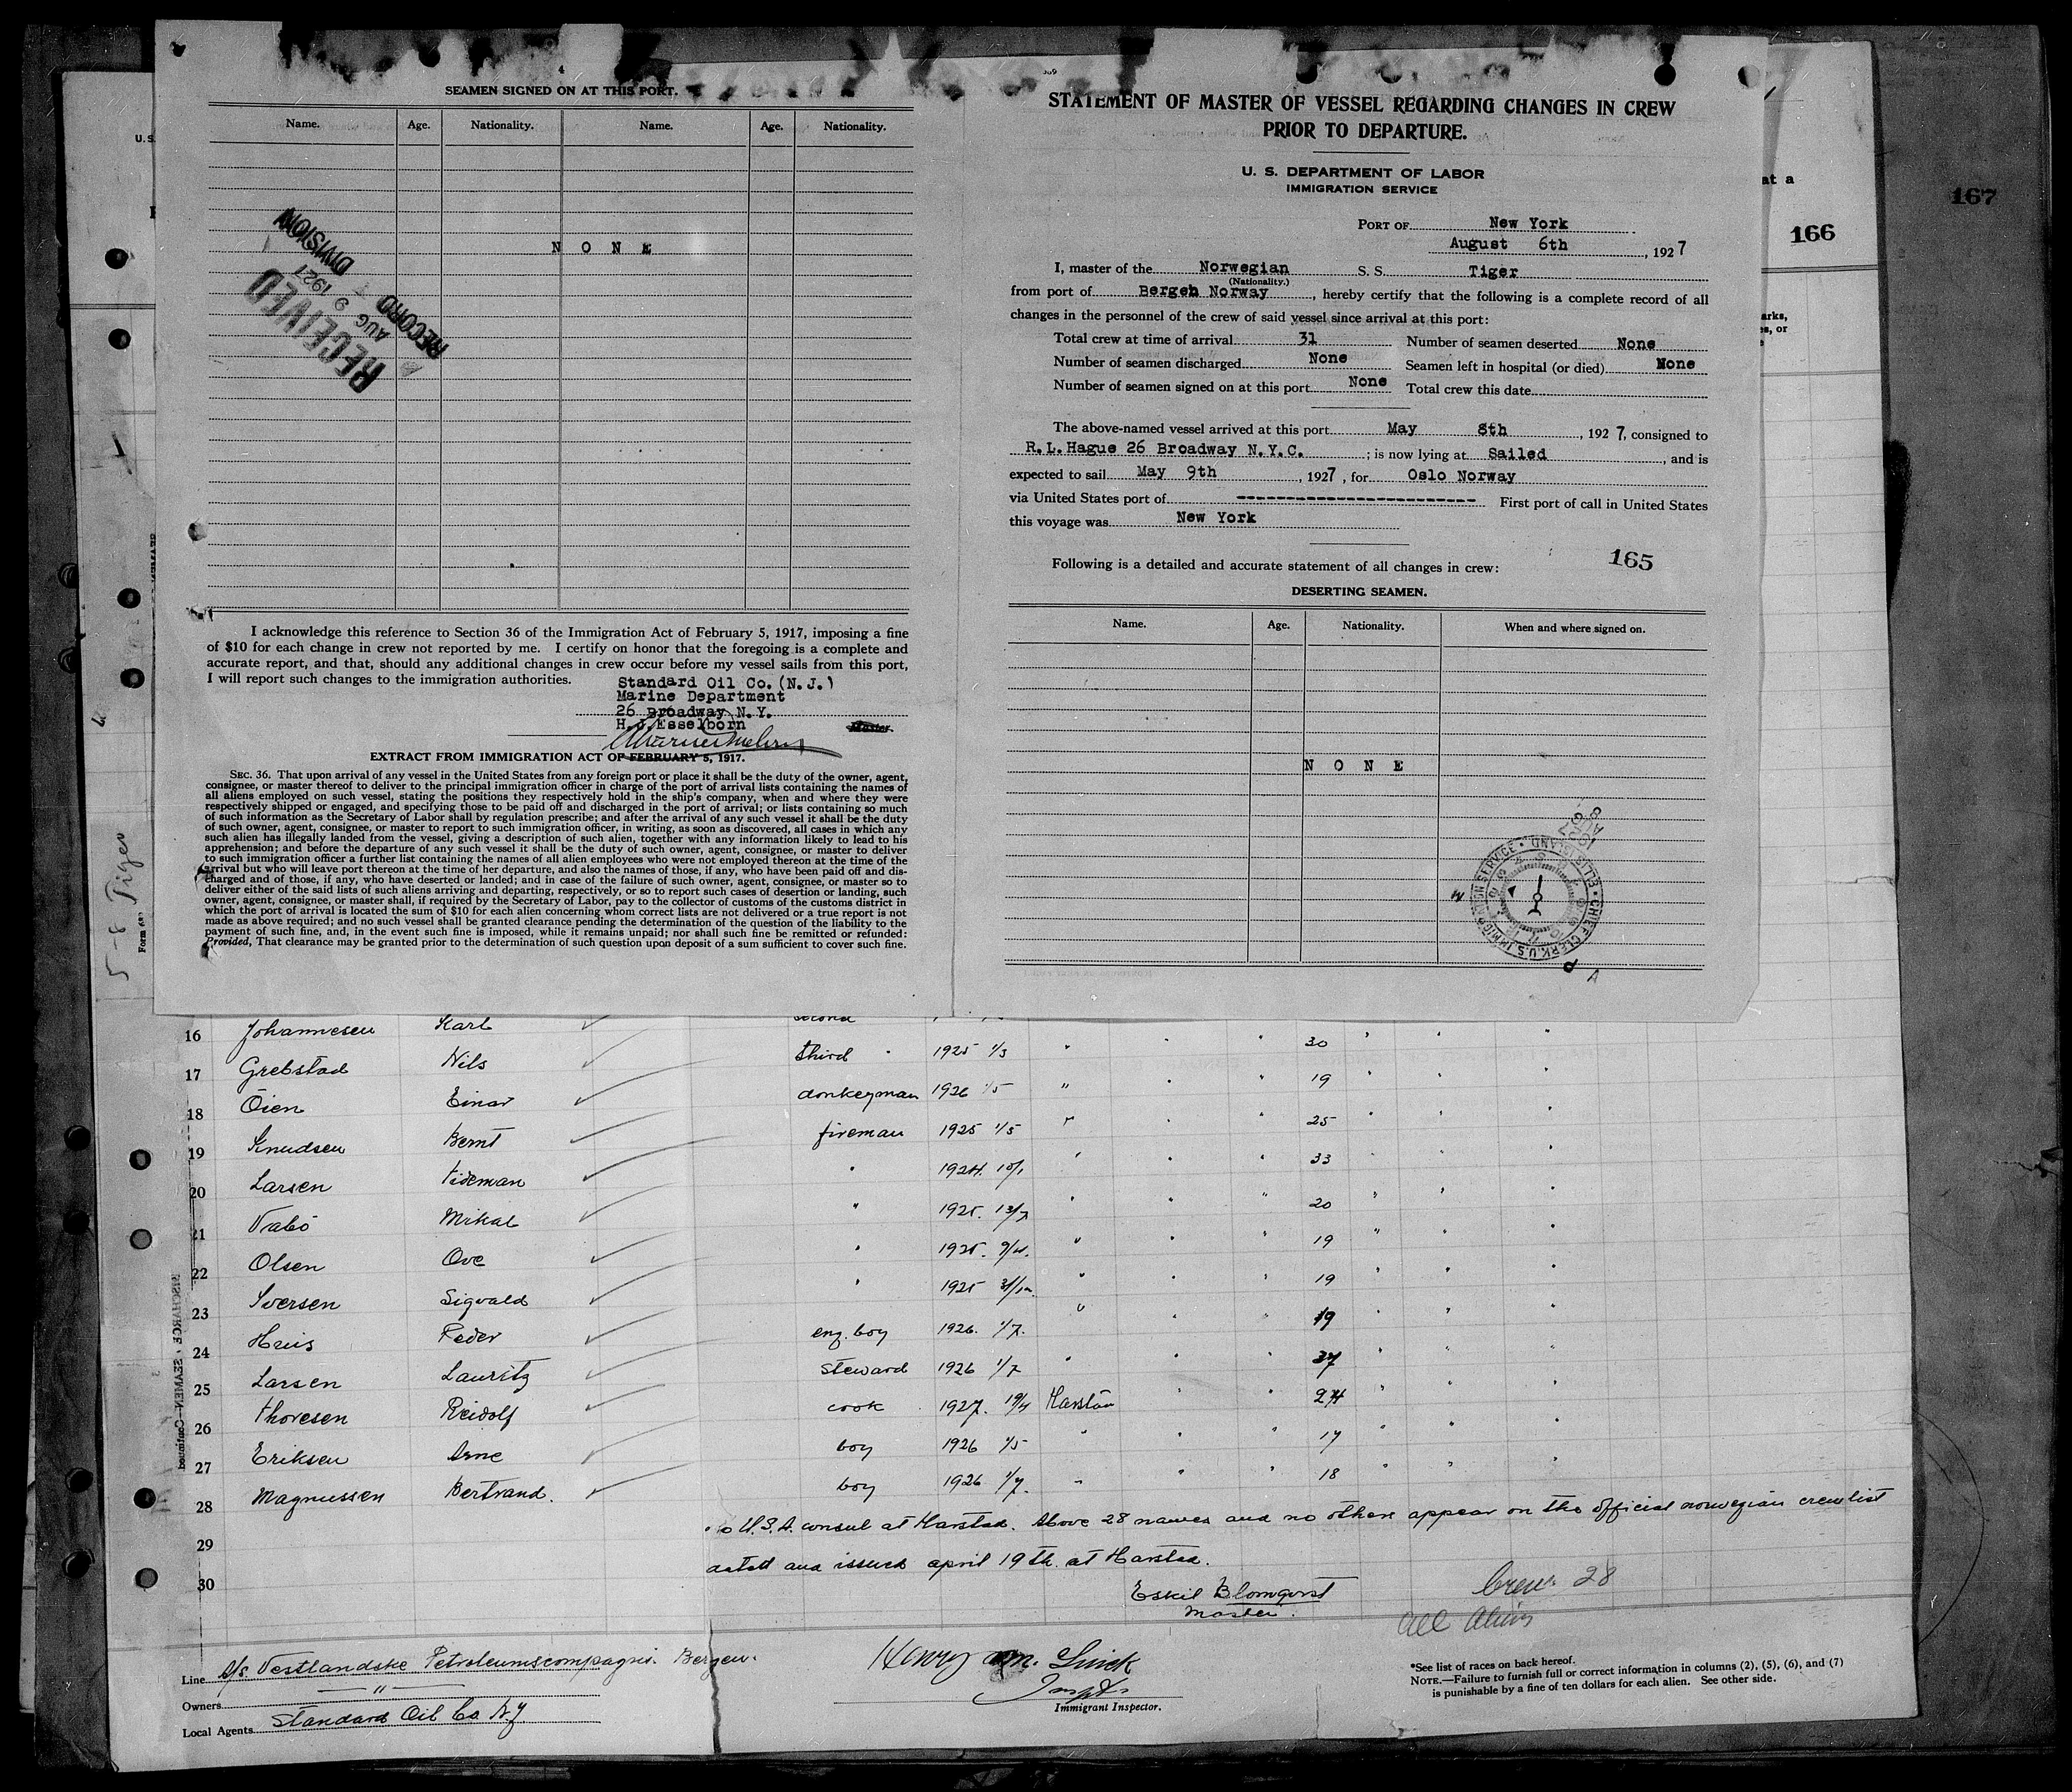 SEAMEN SIGNED ON AT THIS PORT.
Name. Age. Nationality. Name. Age. Nationality.
N O N E
RECEIVED
AUG 9 1927
RECORD
DIVISION
I acknowledge this reference to Section 36 of the Immigration Act of February 5, 1917, imposing a fine
of $10 for each change in crew not reported by me. I certify on honor that the foregoing is a complete and
accurate report, and that, should any additional changes in crew occur before my vessel sails from this port,
I will report such changes to the immigration authorities.
Standard Oil Co.(N.J.)
Marine Department
26 Broadway N.Y.
H.J.Esselborn
Master.
EXTRACT FROM IMMIGRATION ACT OF FEBRUARY 5, 1917.
SEC. 36. That upon arrival of any vessel in the United States from any foreign port or place it shall be the duty of the owner, agent,
consignee, or master thereof to deliver to the principal immigration officer in charge of the port of arrival lists containing the names of
all aliens employed on such vessel, stating the positions they respectively hold in the ship's company, when and where they were
respectively shipped or engaged, and specifying those to be paid off and discharged in the port of arrival; or lists containing so much
of such information as the Secretary of Labor shall by regulation prescribe; and after the arrival of any such vessel it shall be the duty
of such owner, agent, consignee, or master to report to such immigration officer, in writing, as soon as discovered, all cases in which any
such alien has illegally landed from the vessel, giving a description of such alien, together with any information likely to lead to his
apprehension; and before the departure of any such vessel it shall be the duty of such owner, agent, consignee, or master to deliver
to such immigration officer a further list containing the names of all alien employees who were not employed thereon at the time of the
arrival but who will leave port thereon at the time of her departure, and also the names of those, if any, who have been paid off and dis-
charged and of those, if any, who have deserted or landed; and in case of the failure of such owner, agent, consignee, or master so to
deliver either of the said lists of such aliens arriving and departing, respectively, or so to report such cases of desertion or landing, such
owner, agent, consignee, or master shall, if required by the Secretary of Labor, pay to the collector of customs of the customs district in
which the port of arrival is located the sum of $10 for each alien concerning whom correct lists are not delivered or a true report is not
made as above required; and no such vessel shall be granted clearance pending the determination of the question of the liability to the
payment of such fine, and, in the event such fine is imposed, while it remains unpaid; nor shall such fine be remitted or refunded:
Provided, That clearance may be granted prior to the determination of such question upon deposit of a sum sufficient to cover such fine.
STATEMENT OF MASTER OF VESSEL REGARDING CHANGES IN CREW
PRIOR TO DEPARTURE.
U. S. DEPARTMENT OF LABOR
IMMIGRATION SERVICE
PORT OF New York
August 6th, 1927
I, master of the Norwegian S. S. Tiger
(Nationality.)
from port of Bergen Norway, hereby certify that the following is a complete record of all
changes in the personnel of the crew of said vessel since arrival at this port:
Total crew at time of arrival 31 Number of seamen deserted None
Number of seamen discharged None Seamen left in hospital (or died) None
Number of seamen signed on at this port None Total crew this date
The above-named vessel arrived at this port May 8th, 1927, consigned to
R.L.Hague 26 Broadway N.Y.C.; is now lying at Sailed, and is
expected to sail May 9th, 1927, for Oslo Norway
via United States port of ------------------------ First port of call in United States
this voyage was New York
Following is a detailed and accurate statement of all changes in crew:
165
DESERTING SEAMEN.
Name. Age. Nationality. When and where signed on.
N O N E
CHIEF CLERK, U.S. IMMIGRATION SERVICE • ELLIS ISLAND
166
167
5-8 Tiger
16 Johannesen Karl second
17 Grebstad Nils third " 1925 1/3 " " " 30 " " "
18 Öien Einar donkeyman 1926 1/5 " " " 19 " " "
19 Knudsen Bernt fireman 1925 1/5 " " " 25 " " "
20 Larsen Tideman " 1924. 10/1 " " " 33 " " "
21 Vabö Mikal " 1925. 13/7 " " " 20 " " "
22 Olsen Ove " 1925. 9/4. " " " 19 " " "
23 Iversen Sigvald " 1925 31/12. " " " 19 " " "
24 Huis Peder eng. boy 1926. 1/7. " " " 19 " " "
25 Larsen Lauritz steward 1926 1/7 " " " 37 " " "
26 Thoresen Reidolf cook 1927. 19/4 Harstad " " 24 " " "
27 Eriksen Arne boy 1926 1/5 " " " 17 " " "
28 Magnussen Bertrand. boy 1926 1/7. " " " 18 " " "
No U.S.A. consul at Harstad. Above 28 names and no others appear on the official norwegian crewlist
29
dated and issued april 19th. at Harstad.
30
Eskil Blomqvist
Master.
Crew 28
All Aliens
Line A/S Vestlandske Petroleumscompagni. Bergen.
Owners "
Local Agents Standard Oil Co. N.J.
Henry M.
Inspt
Immigrant Inspector.
*See list of races on back hereof.
NOTE.—Failure to furnish full or correct information in columns (2), (5), (6), and (7)
is punishable by a fine of ten dollars for each alien. See other side.